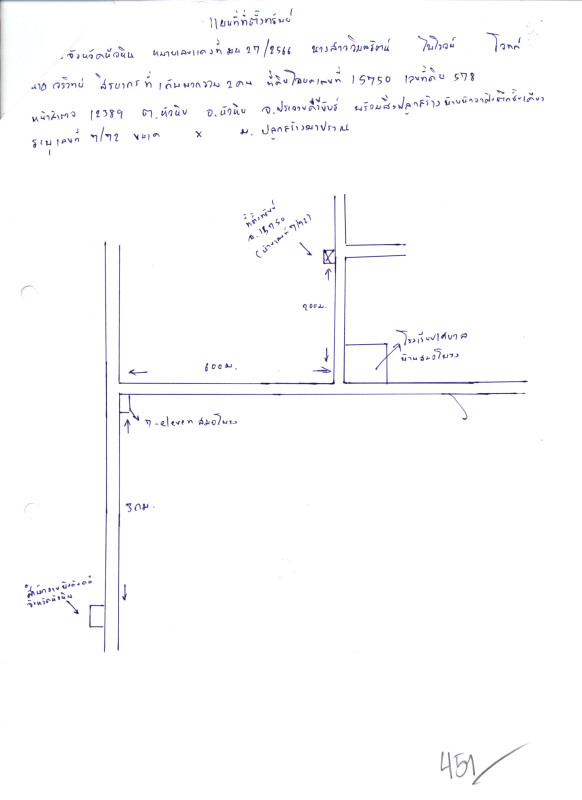 แผนที่ที่ตั้งทรัพย์
จังหวัดหัวหิน หมายเลขแดงที่ ผบ 27/2566 นางสาววิมลรัตน์ โจทก์
ที่ 1 กับพวกรวม 2 คน ที่ดินโฉนดเลขที่ 15750 เลขที่ดิน 578
หน้าสำรวจ 12389 ต.หัวหิน อ.หัวหิน จ.ประจวบคีรีขันธ์ พร้อมสิ่งปลูกสร้างบ้านพักอาศัยตึกชั้นเดียว
ระบุเลขที่ 7/72 ขนาด x ม. ปลูกสร้างมาประมาณ
ที่ตั้งทรัพย์
ฉ.15750
(บ้านเลขที่ 7/72)
200ม.
โรงเรียนเทศบาล
บ้านสมอโพรง
600ม.
7-eleven สมอโพรง
3กม.
สำนักงานบังคับคดี
จังหวัดหัวหิน
451